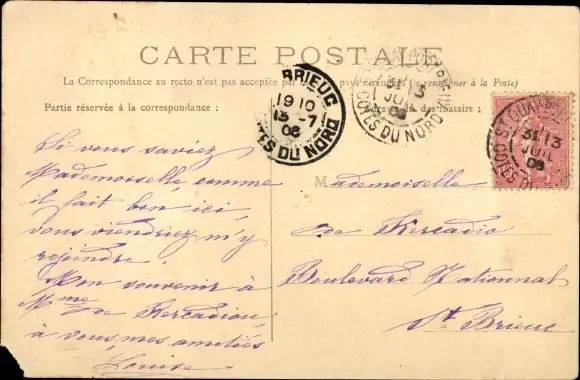 CARTE POSTALE
La Correspondance au recto n'est pas acceptée par pays étrangers (se renseigner à la Poste)
Partie réservée à la correspondance :
Adresse du destinataire :
BRIEUC
19 10
13 -7
08
CÔTES DU NORD
3E 13
JUIL
08
CÔTES DU NORD
3E 13
JUIL
08
Si vous saviez
Mademoiselle comme
il fait bon ici,
vous viendriez m'y
rejoindre.
Mon souvenir à
Mme de Kercadiou,
à vous, mes amitiés
Louise
Mademoiselle
de Kercadio
Boulevard Nationnal
St Brieuc